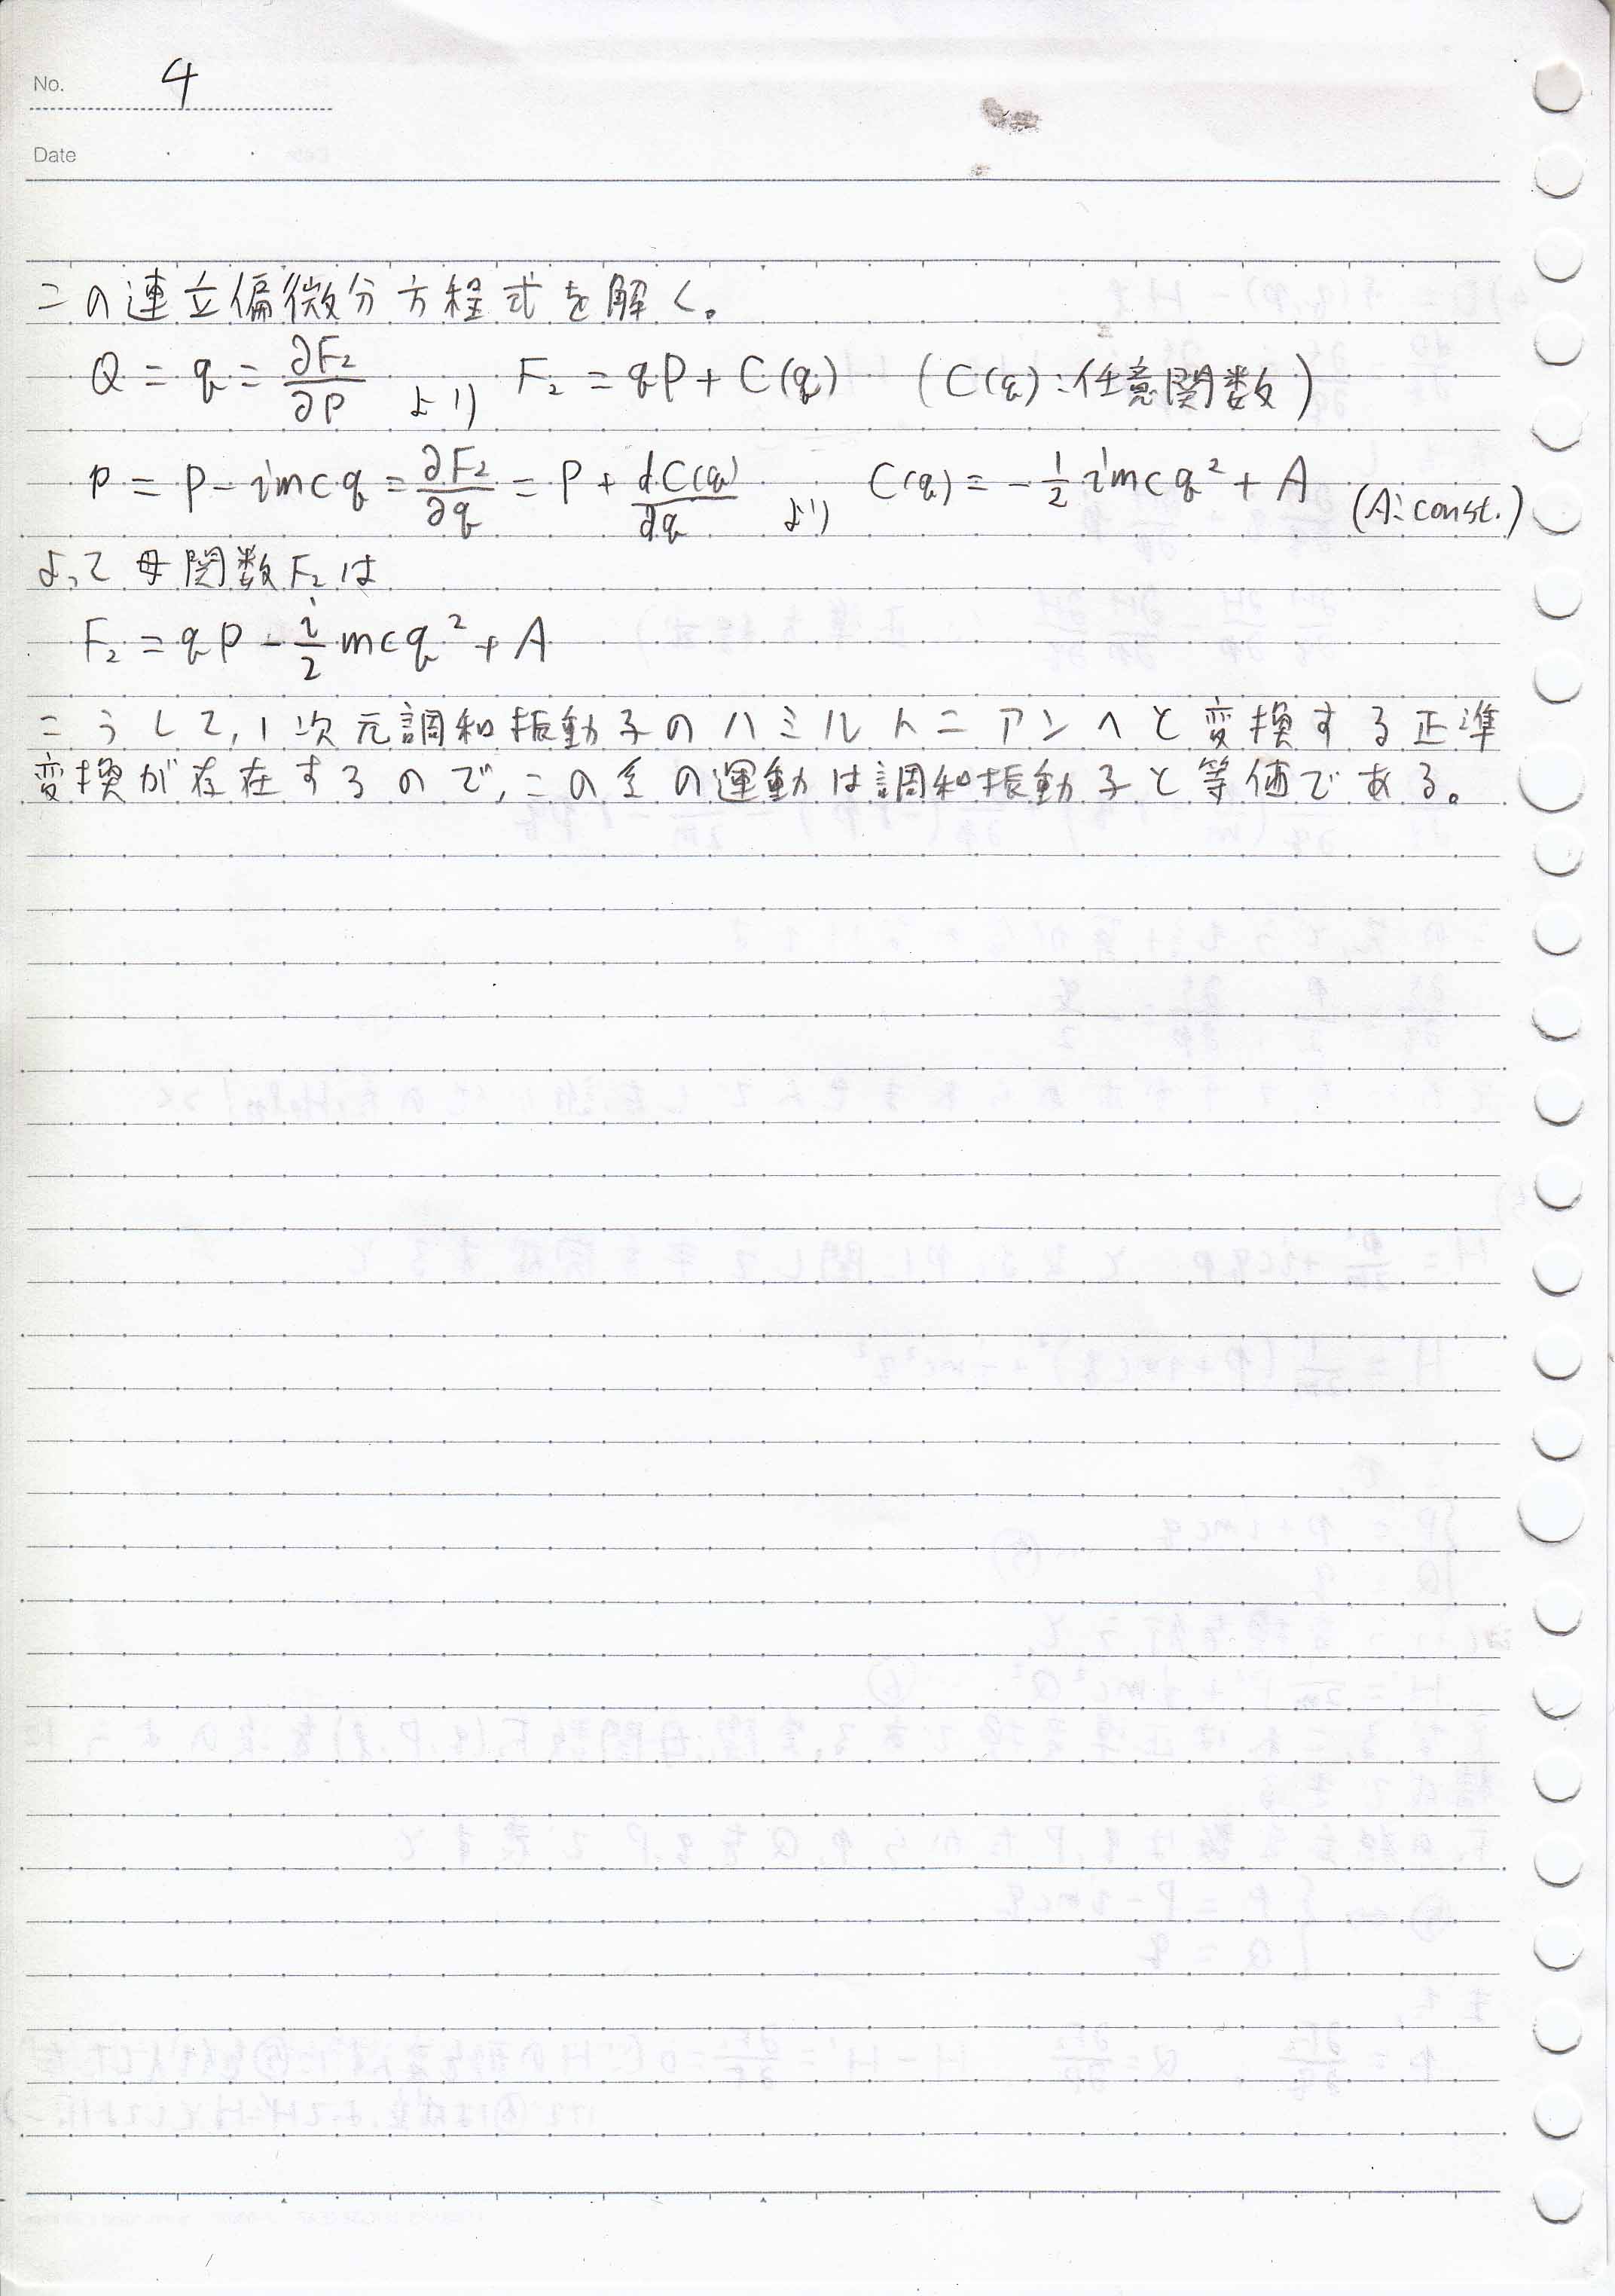 No. 4
Date
この連立偏微分方程式を解く。
Q = q = ∂F₂/∂P より F₂ = qP + C(q) (C(q):任意関数)
p = P - imcq = ∂F₂/∂q = P + dC(q)/dq より C(q) = -1/2 imcq² + A (A:const.)
よって母関数F₂は
F₂ = qP - i/2 mcq² + A
こうして,1次元調和振動子のハミルトニアンへと変換する正準
変換が存在するので,この系の運動は調和振動子と等価である。